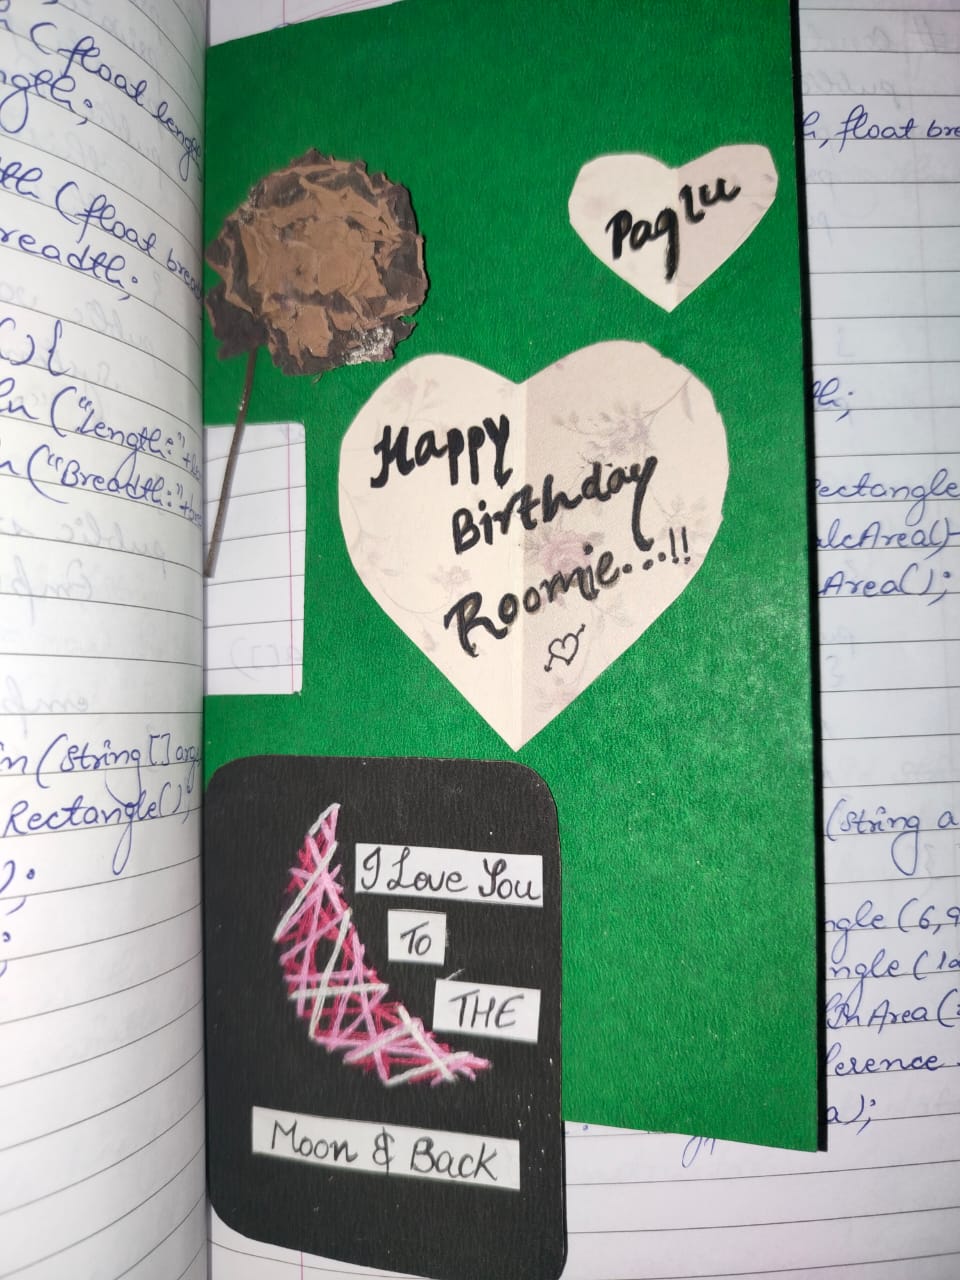 ( float length
ngth;
dth ( float brea
readth;
() {
ln ("Length:"
n ("Breadth:"
in (String [] arg
Rectangle();
Paglu
Happy
Birthday
Roomie...!!
I Love You
To
THE
Moon & Back
h, float bre
th;
Rectangle
alcArea()
Area();
(String a
ngle (6,9
ngle (10
Area (
ference
a);